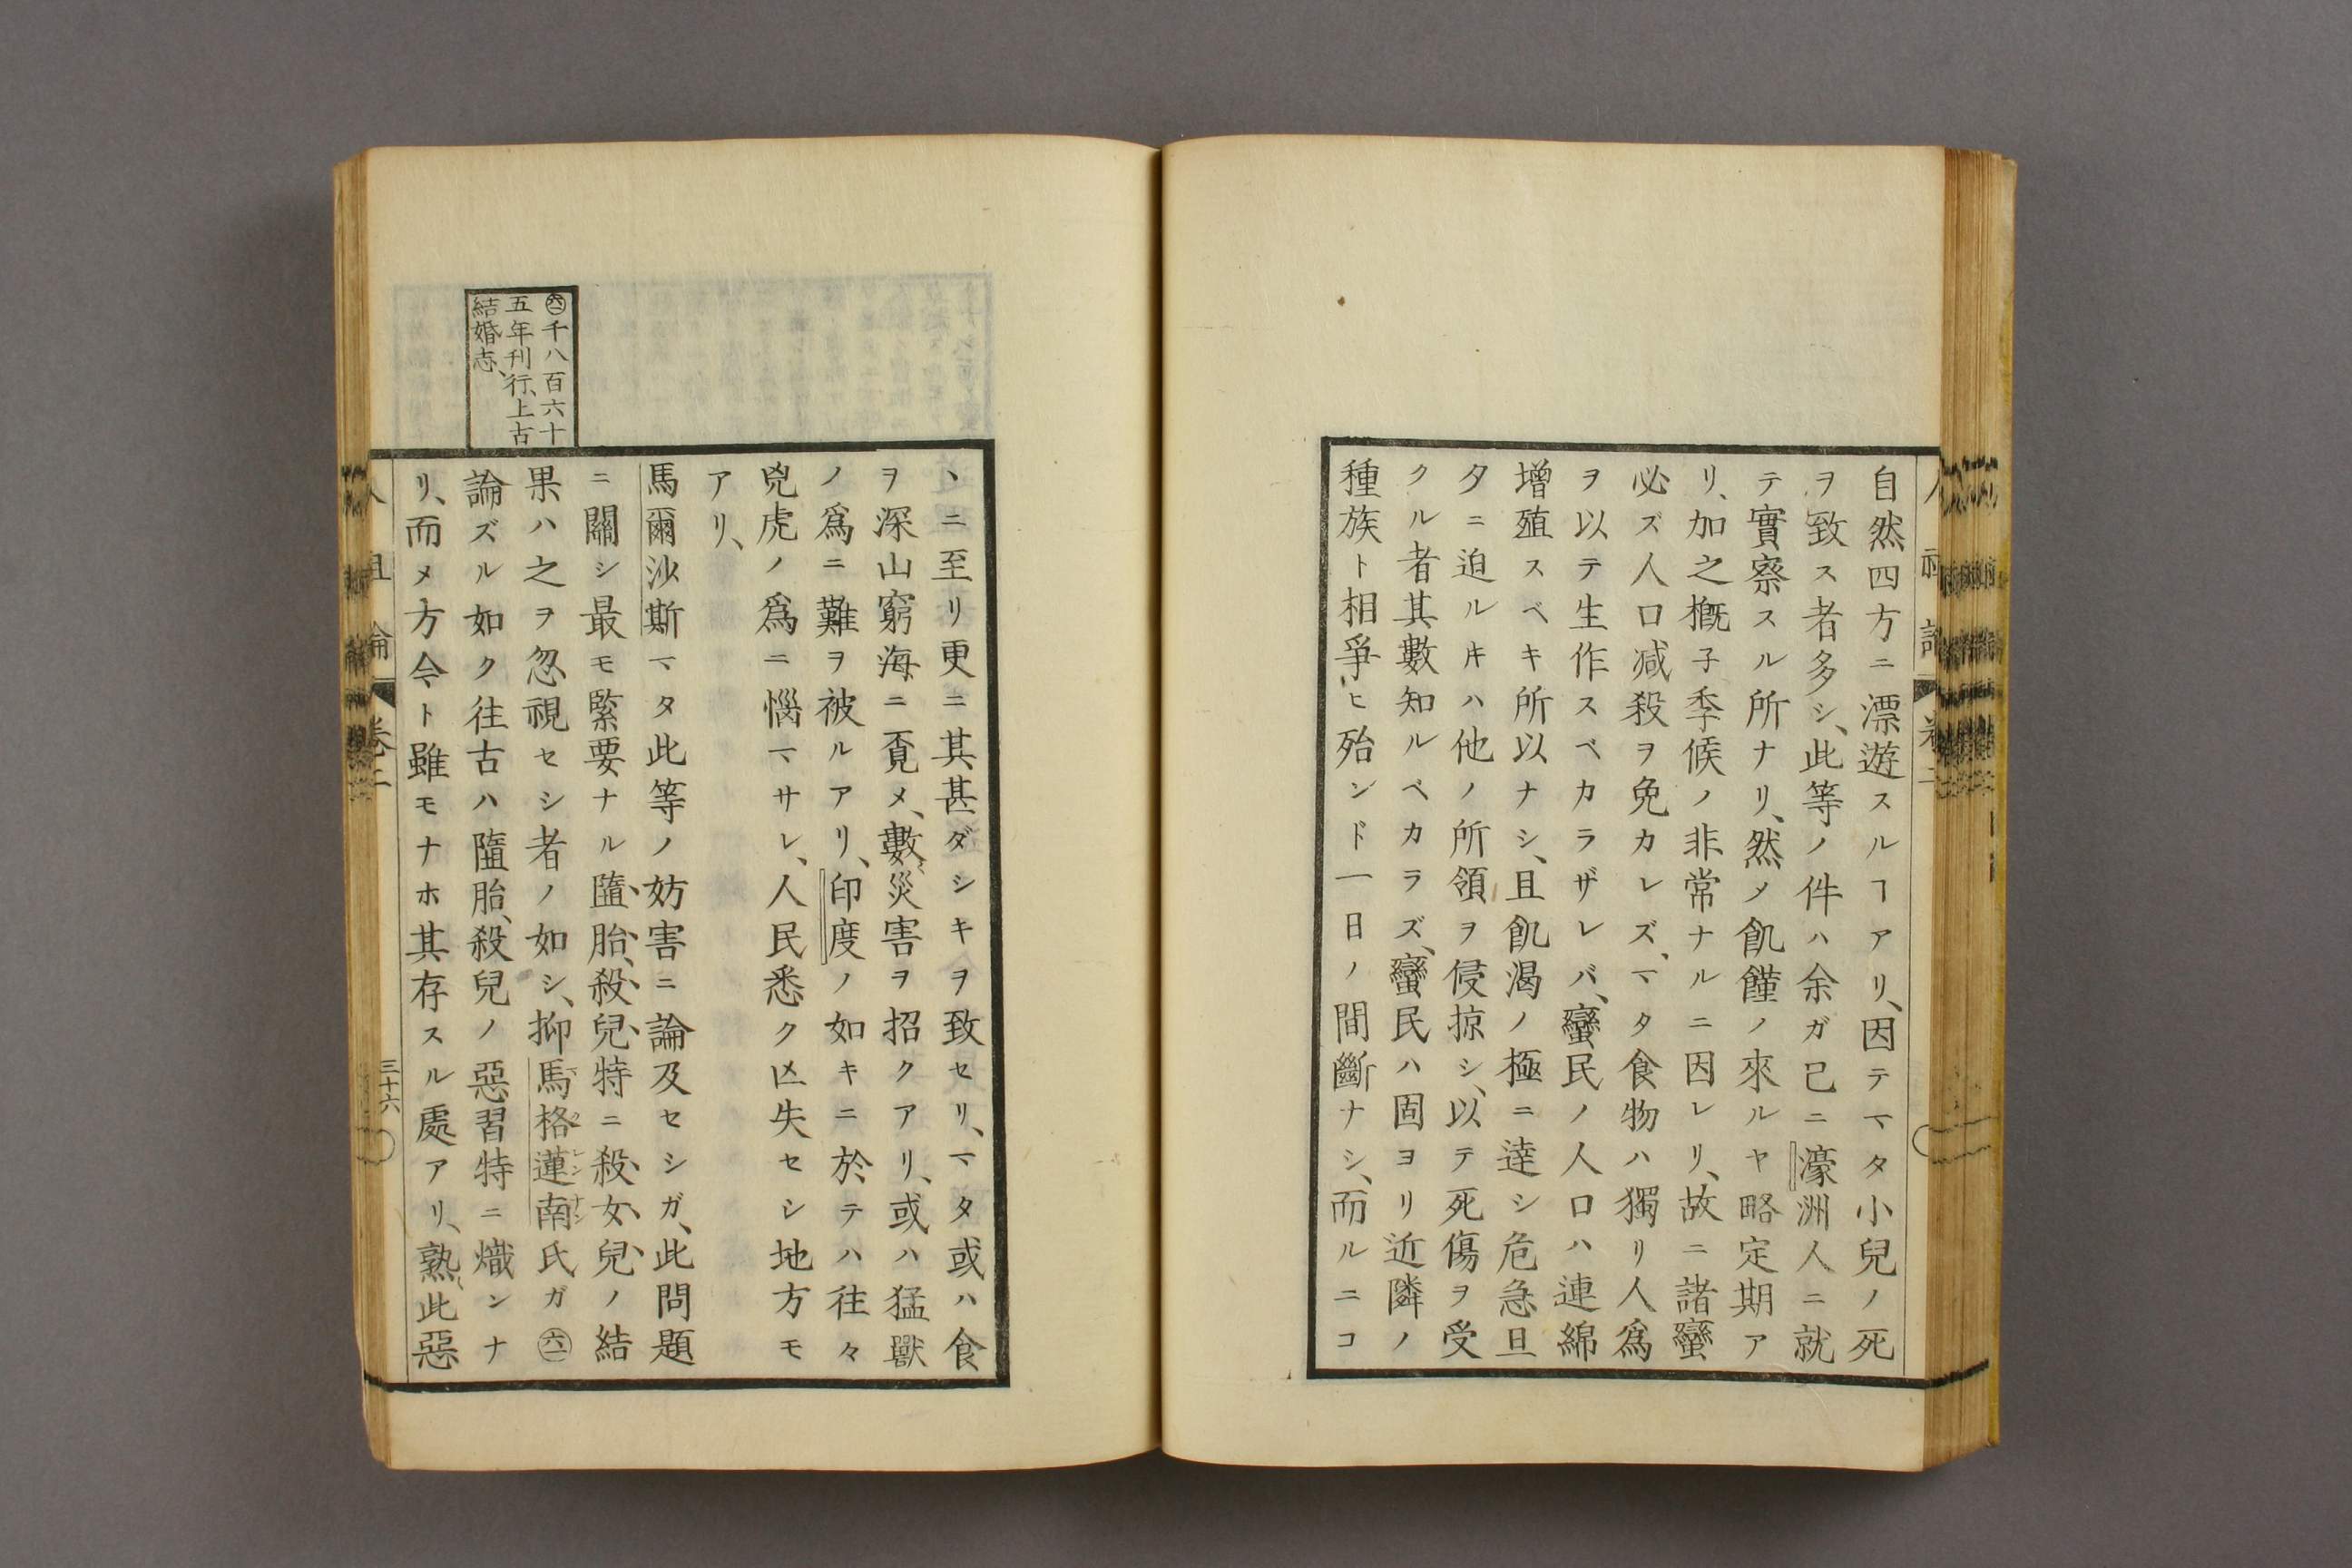 自然四方ニ漂遊スルヿアリ、因テマタ小兒ノ死
ヲ致ス者多シ、此等ノ件ハ余ガ已ニ濠洲人ニ就
テ實察スル所ナリ、然メ飢饉ノ來ルヤ略定期ア
リ、加之槪子季候ノ非常ナルニ因レリ、故ニ諸蠻
必ズ人口减殺ヲ免カレズ、マタ食物ハ獨リ人爲
ヲ以テ生作スベカラザレバ、蠻民ノ人口ハ連綿
增殖スベキ所以ナシ、且飢渴ノ極ニ達シ危急旦
夕ニ迫ルキハ他ノ所領ヲ侵掠シ、以テ死傷ヲ受
クル者其數知ルベカラズ、蠻民ハ固ヨリ近隣ノ
種族ト相爭ヒ殆ンド一日ノ間斷ナシ、而ルニコ
ヽニ至リ更ニ其甚ダシキヲ致セリ、マタ或ハ食
ヲ深山窮海ニ覔メ、數災害ヲ招クアリ、或ハ猛獸
ノ爲ニ難ヲ被ルアリ、印度ノ如キニ於テハ往々
兕虎ノ爲ニ惱マサレ、人民悉ク亾失セシ地方モ
アリ、
馬爾沙斯マタ此等ノ妨害ニ論及セシガ、此問題
ニ關シ最モ緊要ナル隨胎、殺兒特ニ殺女兒ノ結
果ハ之ヲ忽視セシ者ノ如シ、抑馬格蓮南氏ガ㊅一
論ズル如ク往古ハ隨胎、殺兒ノ惡習特ニ熾ンナ
リ、而メ方今ト雖モナホ其存スル處アリ、熟此惡
㊅一千八百六十
五年刊行、上古
結婚志、
卷二
三十六